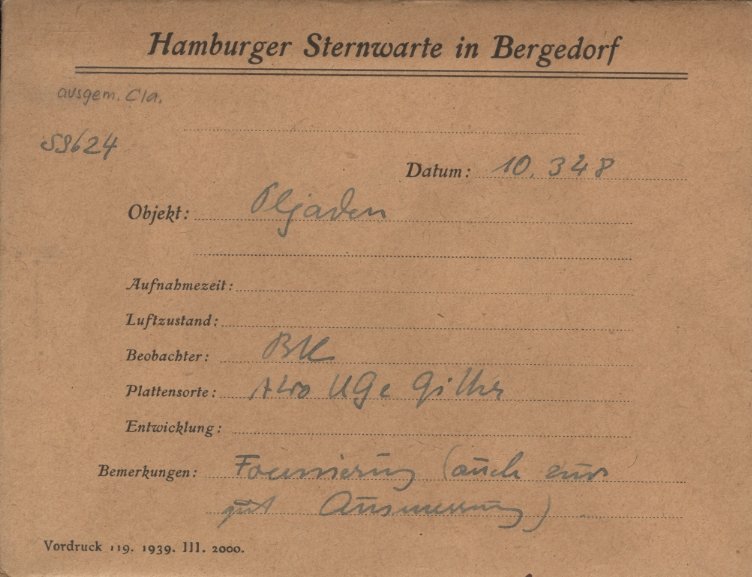 Hamburger Sternwarte in Bergedorf
ausgem. Cla.
S9624
Datum: 10. 3 48
Objekt: Pljaden
Aufnahmezeit:
Luftzustand:
Beobachter:
Plattensorte:
Entwicklung:
Bemerkungen: Focussierung (auch zur
gut Ausmessung)
Vordruck 119. 1939. III. 2000.